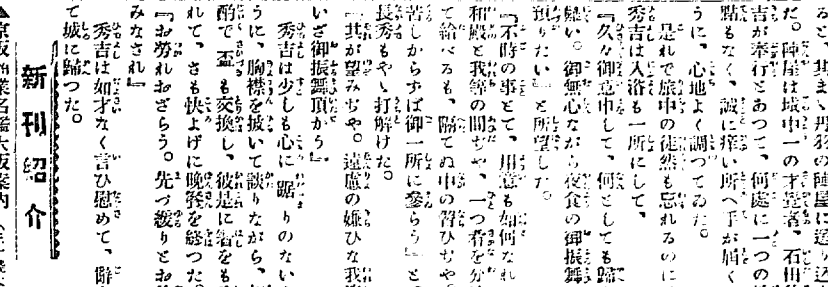 ると、其まゝ丹羽の陣屋に送り込
だ。陣屋は城中一の才覺者、石田
吉が奉行とあつて、何處に一つの
點もなく、誠に痒い所へ手が屆く
うに、心地よく調つてゐた。
是れで旅中の徒然も忘れるのに
秀吉は入浴も一所にして、
『久々御意中して、何としても歸
難い。御無心ながら夜食の御振舞
預りたい』と所望した。
『不時の事とて、用意も如何なれ
和殿と我等の間ぢや、一つ肴を分
て給べるも、隔てぬ中の習ひぢや。
苦しからずば御一所に參らう』と
長秀もやゝ打解けた。
『其が望みぢや。遠慮の嫌ひな我
いざ御振舞頂かう』
秀吉は少しも心に蹈りのない
うに、胸襟を披いて談りながら、
酌で、盃も交換し、彼是に箸をも
れて、さも快よげに晩餐を終つた。
『お勞れおざらう。先づ緩りとお
みなされ』
秀吉は如才なく言ひ慰めて、辭
て城に歸つた。
新刊紹介
業名鑑大阪案内